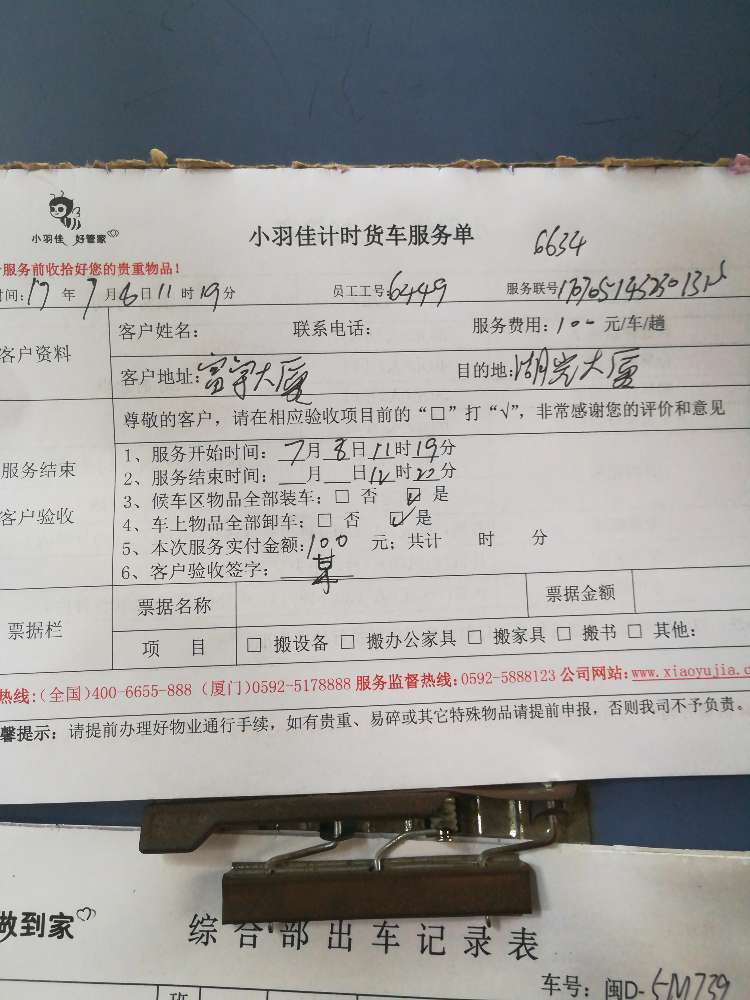 小羽佳 好管家
小羽佳计时货车服务单
6634
服务前收拾好您的贵重物品！
时间：17 年 7 月 8 日 11 时 19 分 员工工号：6449 服务联号
客户资料 客户姓名： 联系电话： 服务费用：100 元/车/趟
客户地址：富宇大厦 目的地：湖光大厦
尊敬的客户，请在相应验收项目前的“□”打“√”，非常感谢您的评价和意见
服务结束
客户验收
1、服务开始时间：7月8日11时19分
2、服务结束时间：__月__日12时20分
3、候车区物品全部装车：□ 否 ☑ 是
4、车上物品全部卸车：□ 否 ☑ 是
5、本次服务实付金额：100 元；共计 时 分
6、客户验收签字：
票据栏 票据名称 票据金额
项 目 □ 搬设备 □ 搬办公家具 □ 搬家具 □ 搬书 □ 其他：
热线：(全国)400-6655-888 (厦门)0592-5178888 服务监督热线：0592-5888123 公司网站：www.xiaoyujia.c
馨提示：请提前办理好物业通行手续，如有贵重、易碎或其它特殊物品请提前申报，否则我司不予负责。
做到家
综合部出车记录表
车号：闽D-5M739
班